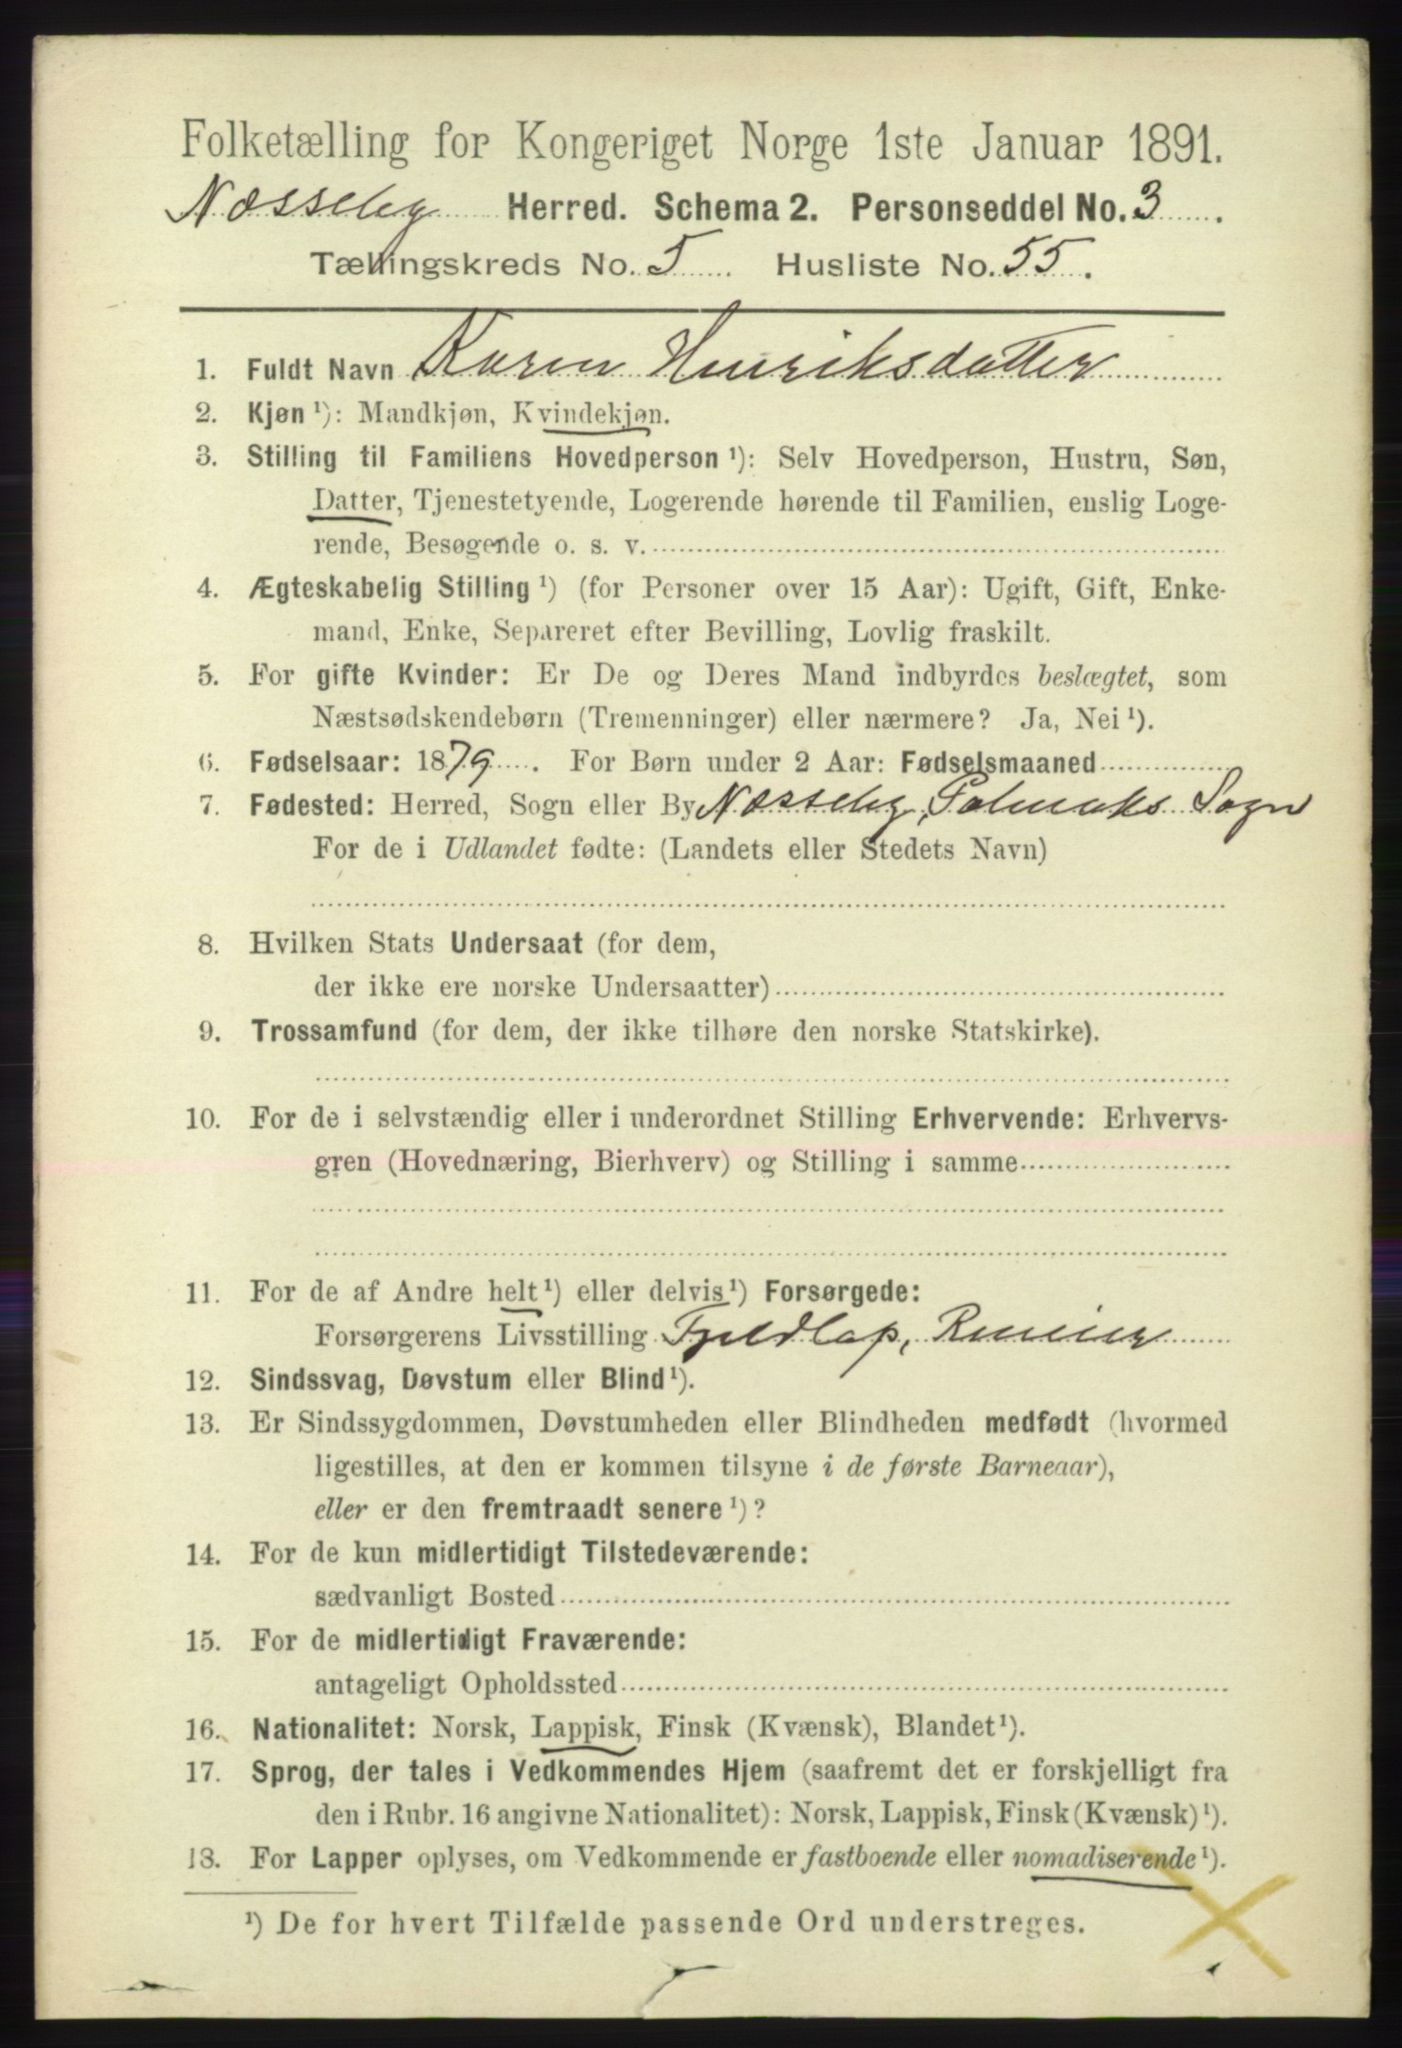 Folketælling for Kongeriget Norge 1ste Januar 1891.
Næsseby Herred. Schema 2. Personseddel No. 3.
Tællingskreds No. 5. Husliste No. 55.
1. Fuldt Navn Karen Henriksdatter
2. Kjøn ¹): Mandkjøn, Kvindekjøn.
3. Stilling til Familiens Hovedperson ¹): Selv Hovedperson, Hustru, Søn,
Datter, Tjenestetyende, Logerende hørende til Familien, enslig Loge-
rende, Besøgende o. s. v.
4. Ægteskabelig Stilling ¹) (for Personer over 15 Aar): Ugift, Gift, Enke-
mand, Enke, Separeret efter Bevilling, Lovlig fraskilt.
5. For gifte Kvinder: Er De og Deres Mand indbyrdes beslægtet, som
Næstsødskendebørn (Tremenninger) eller nærmere? Ja, Nei ¹).
6. Fødselsaar: 1879. For Børn under 2 Aar: Fødselsmaaned
7. Fødested: Herred, Sogn eller By Næsseby, Polmaks Sogn
For de i Udlandet fødte: (Landets eller Stedets Navn)
8. Hvilken Stats Undersaat (for dem,
der ikke ere norske Undersaatter)
9. Trossamfund (for dem, der ikke tilhøre den norske Statskirke).
10. For de i selvstændig eller i underordnet Stilling Erhvervende: Erhvervs-
gren (Hovednæring, Bierhverv) og Stilling i samme
11. For de af Andre helt ¹) eller delvis ¹) Forsørgede:
Forsørgerens Livsstilling Fjeldlap, Reneier
12. Sindssvag, Døvstum eller Blind ¹).
13. Er Sindssygdommen, Døvstumheden eller Blindheden medfødt (hvormed
ligestilles, at den er kommen tilsyne i de første Barneaar),
eller er den fremtraadt senere ¹)?
14. For de kun midlertidigt Tilstedeværende:
sædvanligt Bosted
15. For de midlertidigt Fraværende:
antageligt Opholdssted
16. Nationalitet: Norsk, Lappisk, Finsk (Kvænsk), Blandet ¹).
17. Sprog, der tales i Vedkommendes Hjem (saafremt det er forskjelligt fra
den i Rubr. 16 angivne Nationalitet): Norsk, Lappisk, Finsk (Kvænsk) ¹).
18. For Lapper oplyses, om Vedkommende er fastboende eller nomadiserende ¹).
¹) De for hvert Tilfælde passende Ord understreges.